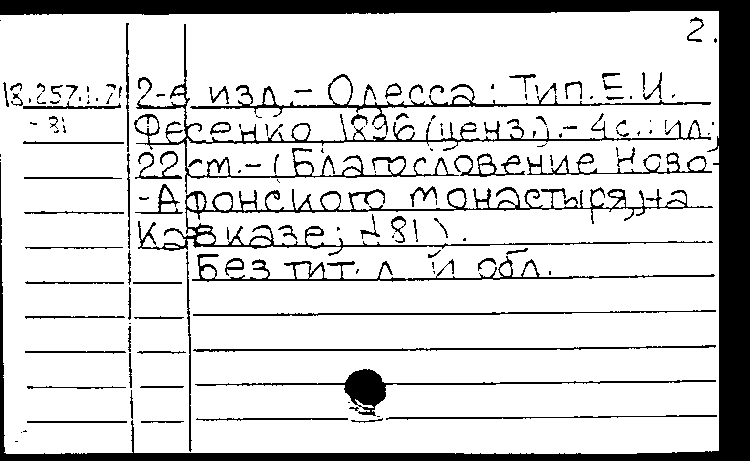 2.
18.257.1.71 2-е изд. - Одесса: Тип. Е.И.
-81 Фесенко, 1896 (ценз.). - 4 с.: ил.;
22 см. - (Благословение Ново-
-Афонского монастыря, на
Кавказе; №81).
Без тит. л. и обл.